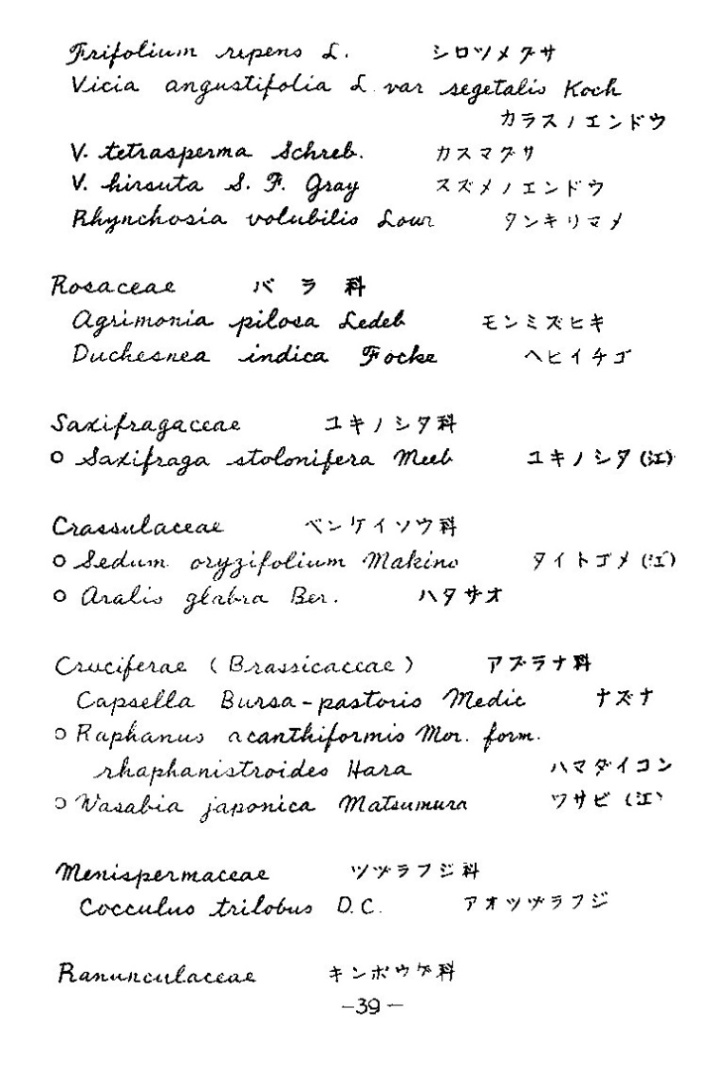 Trifolium repens L. シロツメグサ
Vicia angustifolia L. var segetalis Koch
カラスノエンドウ
V. tetrasperma Schreb. カスマグサ
V. hirsuta S. F. Gray スズメノエンドウ
Rhynchosia volubilis Lour タンキリマメ
Rosaceae バラ科
Agrimonia pilosa Ledeb モンミズヒキ
Duchesnea indica Focke ヘビイチゴ
Saxifragaceae ユキノシタ科
○ Saxifraga stolonifera Meeb ユキノシタ(江)
Crassulaceae ベンケイソウ科
○ Sedum oryzifolium Makino タイトゴメ(江)
○ Aralis glabra Ber. ハタザオ
Cruciferae (Brassicaceae) アブラナ科
Capsella Bursa-pastoris Medic ナズナ
○ Raphanus acanthiformis Mor. form.
rhaphanistroides Hara ハマダイコン
○ Wasabia japonica Matsumura ワサビ(江)
Menispermaceae ツヅラフジ科
Cocculus trilobus D.C. アオツヅラフジ
Ranunculaceae キンポウゲ科
-39-